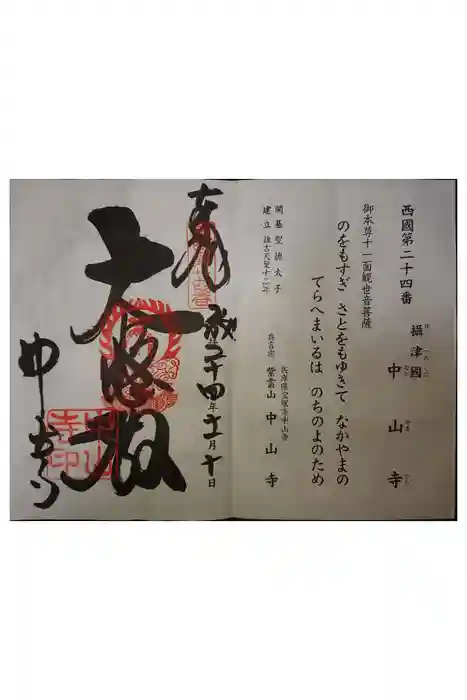 西國第二十四番
攝津國
中山寺
なか
やま
でら
御本尊十一面観世音菩薩
のをもすぎ さとをもゆきて なかやまの
てらへまいるは のちのよのため
開基聖徳太子
建立 推古天皇十二年
兵庫県宝塚市中山寺
真言宗 紫雲山 中山寺
奉拝
平成二十四年十二月十日
大悲殿
中山寺
中山
寺印